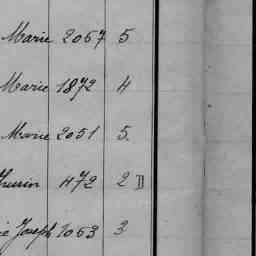 Marie 2067 5
Marie 1872 4
Marie 2051 5.
472 2
Joseph 1063 3